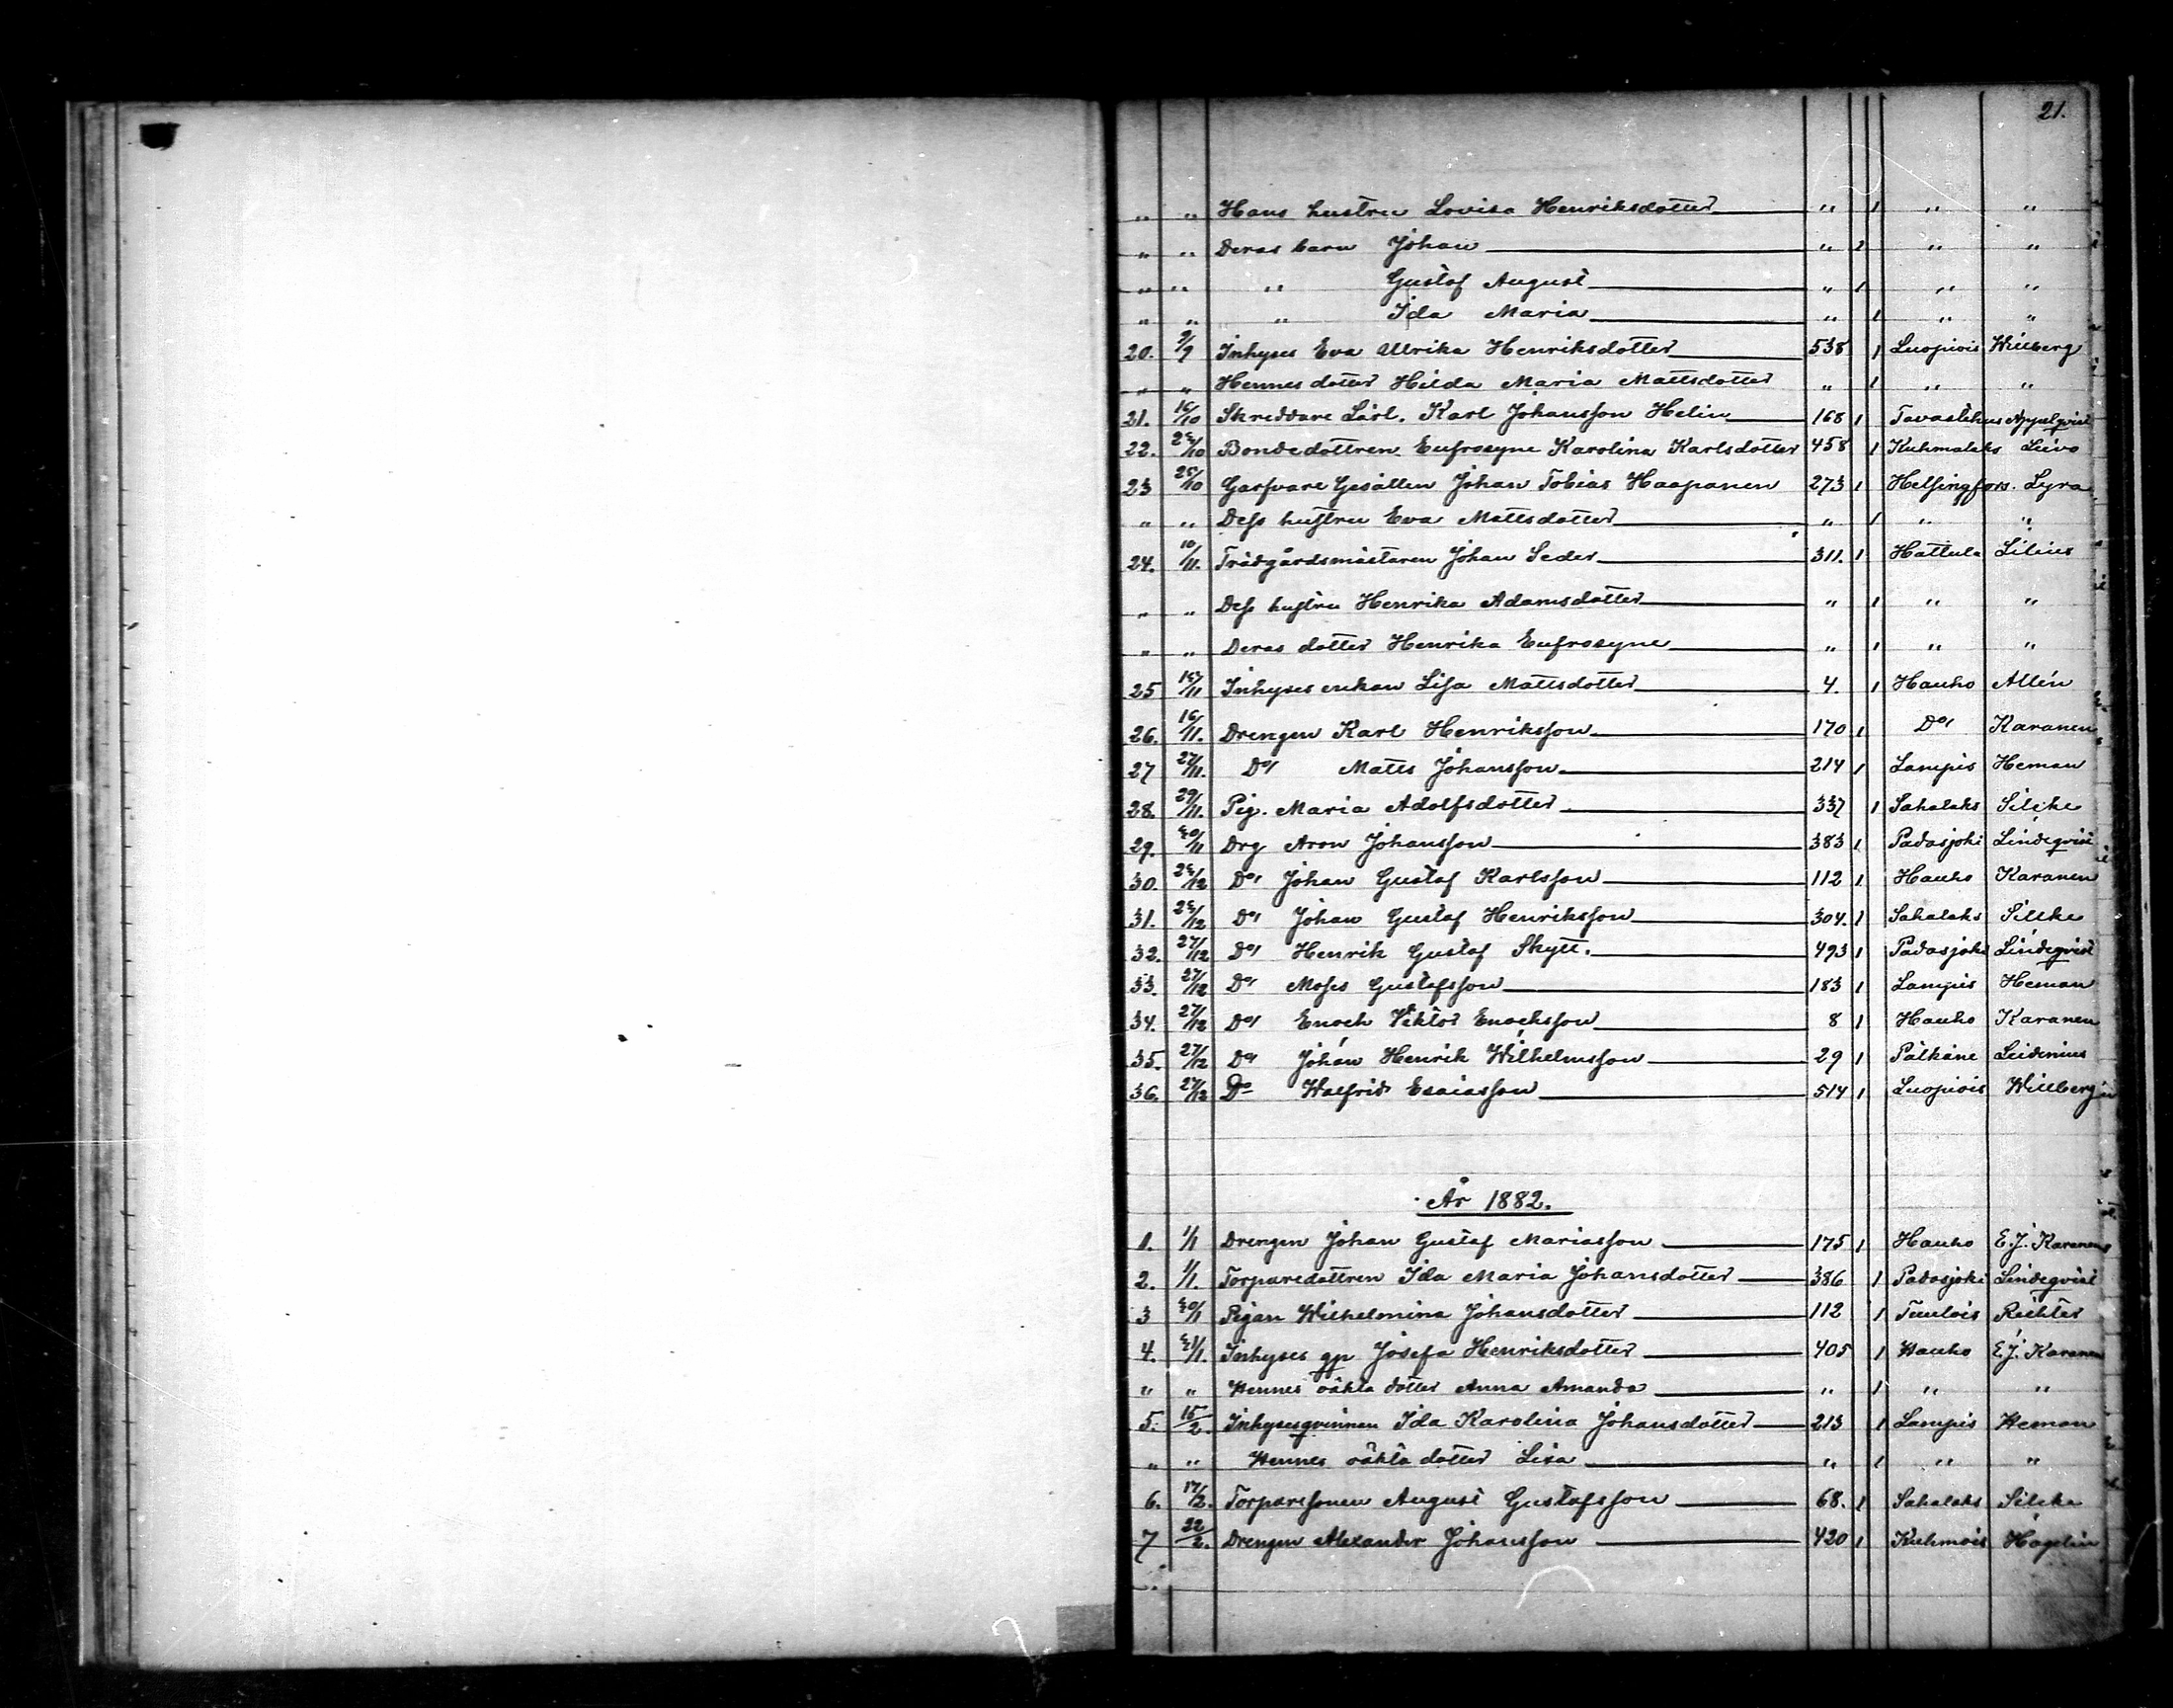 21.
„ „ Hans hustru Lovisa Henriksdotter „ 1 „ „
„ „ Deras barn Johan „ 1 „ „
„ „ „ Gustaf August „ 1 „ „
„ „ „ Ida Maria „ 1 „ „
20. 9/9 Inhyses Eva Ulrika Henriksdotter 538 1 Luopiois Willberg
„ „ Hennes dotter Hilda Maria Mattsdotter „ 1 „ „
21. 16/10 Skreddare Lärl. Karl Johansson Helin 168 1 Tavastehus Appelqvist
22. 23/10 Bondedottren Eufrosyne Karolina Karlsdotter 458 1 Kuhmalaks Leivo
23 25/10 Garfvare Gesällen Johan Tobias Haapanen 273 1 Helsingfors. Lyra
„ „ Dess hustru Eva Mattsdotter „ 1 „ „
24. 10/11. Trädgårdsmästaren Johan Seder 311. 1 Hattula Lilius
„ „ Dess hustru Henrika Adamsdotter „ 1 „ „
„ „ Deras dotter Henrika Eufrosyne „ 1 „ „
25 15/11 Inhyses enkan Lisa Mattsdotter 4. 1 Hauho Allén
26. 16/11. Drengen Karl Henriksson 170 1 Do Karanen
27 27/11. Do Matts Johansson 214 1 Lampis Heman
28. 29/11. Pig. Maria Adolfsdotter 337 1 Sahalaks Silcke
29. 30/11 Drg Aron Johansson 383 1 Padasjoki Lindeqvist
30. 23/12 Do Johan Gustaf Karlsson 112 1 Hauho Karanen
31. 23/12 Do Johan Gustaf Henriksson 304. 1 Sahalaks Silcke
32. 27/12 Do Henrik Gustaf Skytt. 493 1 Padasjoki Lindeqvist
33. 27/12 Do Moses Gustafsson 183 1 Lampis Heman
34. 27/12 Do Enoch Viktor Enochsson 8 1 Hauho Karanen
35. 27/12 Do Johan Henrik Wilhelmsson 29 1 Pälkäne Leidenius
36. 27/12 Do Walfrid Esaiasson 514 1 Luopiois Willberg
År 1882.
1. 1/1 Drengen Johan Gustaf Mariasson 175 1 Hauho E.J. Karanen
2. 1/1. Torparedottren Ida Maria Johansdotter 386 1 Padasjoki Lindeqvist
3 30/1 Pigan Wilhelmina Johansdotter 112 1 Tuulois Richter
4. 31/1. Inhyses qp Josefa Henriksdotter 405 1 Hauho E.J. Karanen
„ „ Hennes oäkta dotter Anna Amanda „ 1 „ „
5. 15/2. Inhysesqvinnan Ida Karolina Johansdotter 213 1 Lampis Heman
„ „ Hennes oäkta dotter Lisa „ 1 „ „
6. 17/2. Torparesonen August Gustafsson 68. 1 Sahalaks Silcke
7 22/2. Drengen Alexander Johansson 420 1 Kuhmois Högelin